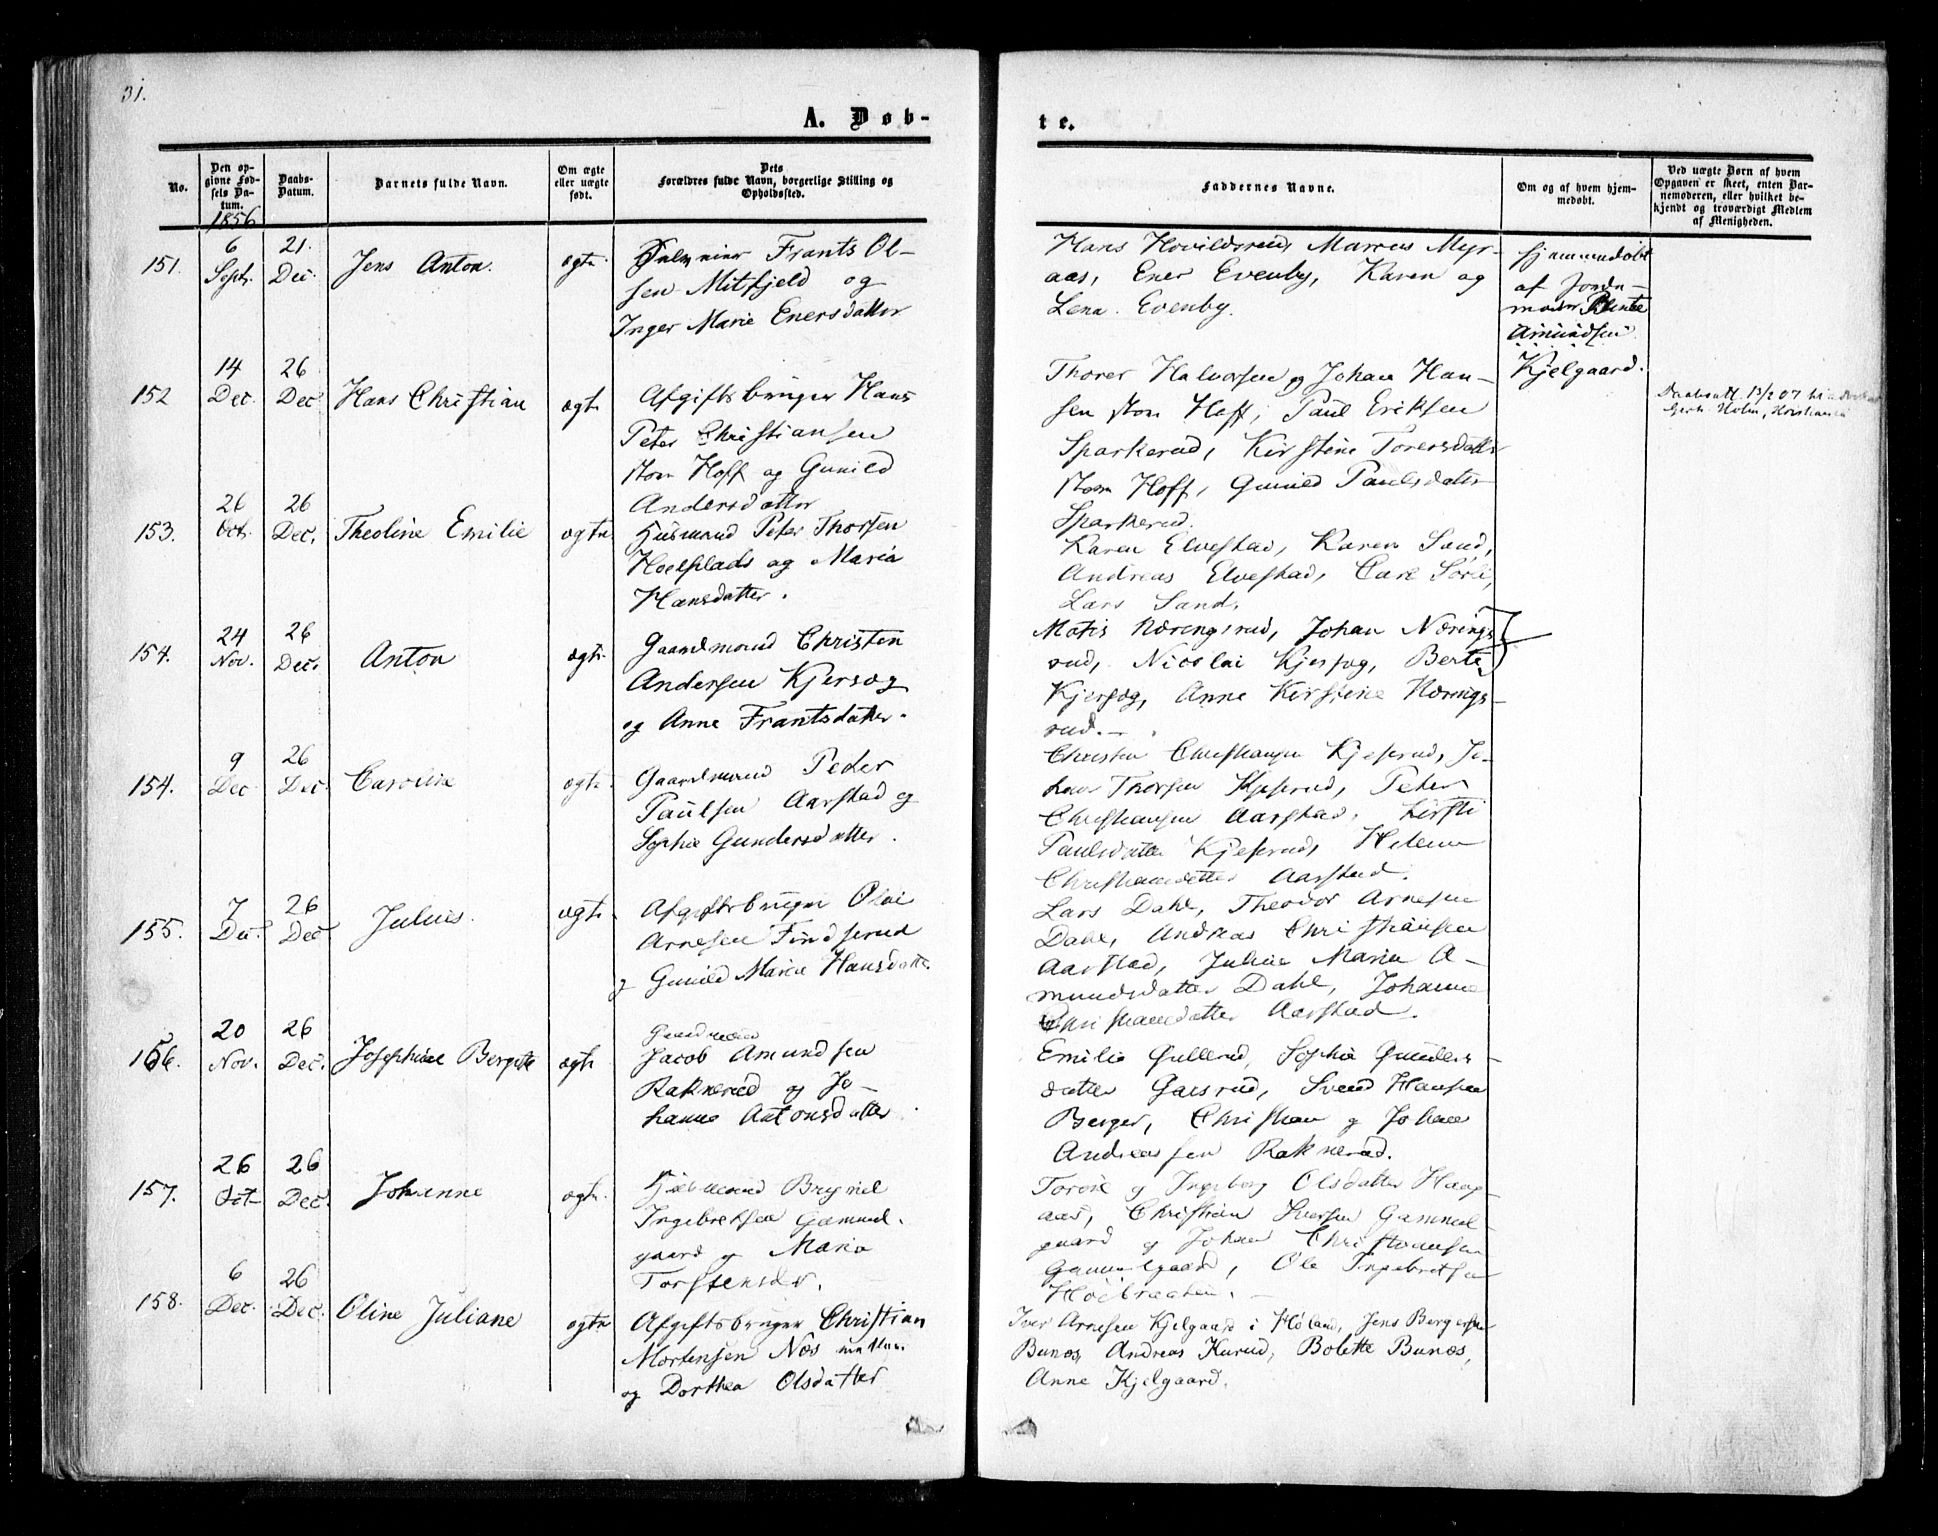 31.
A. Døb-
te.
No.
Den op-
givne Fød-
sels Da-
tum.
Daabs-
Datum.
Barnets fulde Navn.
Om ægte
eller uægte
født.
Dets
Forældres fulde Navn, borgerlige Stilling og
Opholdssted.
Faddernes Navne.
Om og af hvem hjem-
medøbt.
Ved uægte Børn af hvem
Opgaven er skeet, enten Bar-
nemoderen, eller hvilket be-
kjendt og troværdigt Medlem
af Menigheden.
1856
151.
6
Sept.
21.
Dec.
Jens Anton.
ægte
Frants Ol-
sen Mitfjeld og
Inger Marie Enersdatter
Hans Hovildsrud, Marcus Myr-
aas, Ener Evenby, Karen og
Lena Evenby.
hjemmedøbt
af Jorde-
moder Bente
Amundsen
Kjelgaard.
152
14
Dec.
26
Dec
Hans Christian
ægte
Afgiftsbruger Hans
Peter Christiansen
Hoff og Gunild
Andersdatter
Thorer Halvorsen og Johan Han-
sen Hoff, Paul Eriksen
Sparkerud, Kirstine Torersdatter
Hoff, Gunild Paulsdatter
Sparkerud.
Daabsatt. 13/2 07
Holm, Kristiania
153.
26
Oct.
26
Dec.
Theoline Emilie
ægte
Husmand Peter Thorsen
Hoelplads og Maria
Hansdatter.
Karen Elvestad, Karen Sand,
Andreas Elvestad, Carl Sørli,
Lars Sand.
154.
24
Nov.
26
Dec.
Anton
ægte
Gaardmand Christen
Andersen Kjersøg
og Anne Frantsdatter.
Matis Næringsrud, Johan Nærings-
rud, Nicolai Kjersøg, Berte
Kjersøg, Anne Kirstine Nærings-
rud.
154.
9
Dec
26
Dec.
Caroline
ægte
Gaardmand Peder
Paulsen Aarstad og
Sophie Gundersdatter.
Christen Christiansen Kjeserud, Jo-
han Thorsen Kjeserud, Peter
Christiansen Aarstad, Kirsti
Paulsdatter Kjeserud, Helene
Christiansdatter Aarstad.
155.
7
Dec.
26
Dec.
Julius.
ægte
Afgiftsbruger Olai
Arnesen Findserud
og Gunild Maria Hansdatter.
Lars Dahl, Theodor Arnesen
Dahl, Andreas Christiansen
Aarstad, Julie Marie A-
mundsdatter Dahl, Johanne
Christiansdatter Aarstad.
156.
20
Nov.
26
Dec.
Josephine Bergitte
ægte
Gaardmand
Jacob Amundsen
Raknerud og Jo-
hanne Antonsdatter.
Emilie Gullerud, Sophie Gunders-
datter Gaisrud, Svend Hansen
Berger, Christian og Johan
Andreassen Raknerud.
157.
26
Oct
26
Dec.
Johanne
ægte
Husmand Brynel
Ingebretsen Gammel-
gaard og Maria
Torstensdr.
Torine og Ingeborg Olsdatter Haag-
aas, Christian Iversen Gammel-
gaard og Johan Christiansen
Gammelgaard, Ole Ingebretsen
Høibraaten.
158.
6
Dec.
26
Dec.
Oline Juliane
ægte
Afgiftsbruger Christian
Mortensen Næs
og Dorthea Olsdatter
Iver Arnesen Kjelgaard i Høland, Jens Bergersen
Bunæs, Andreas Kurud, Bolette Bunæs,
Anne Kjelgaard.